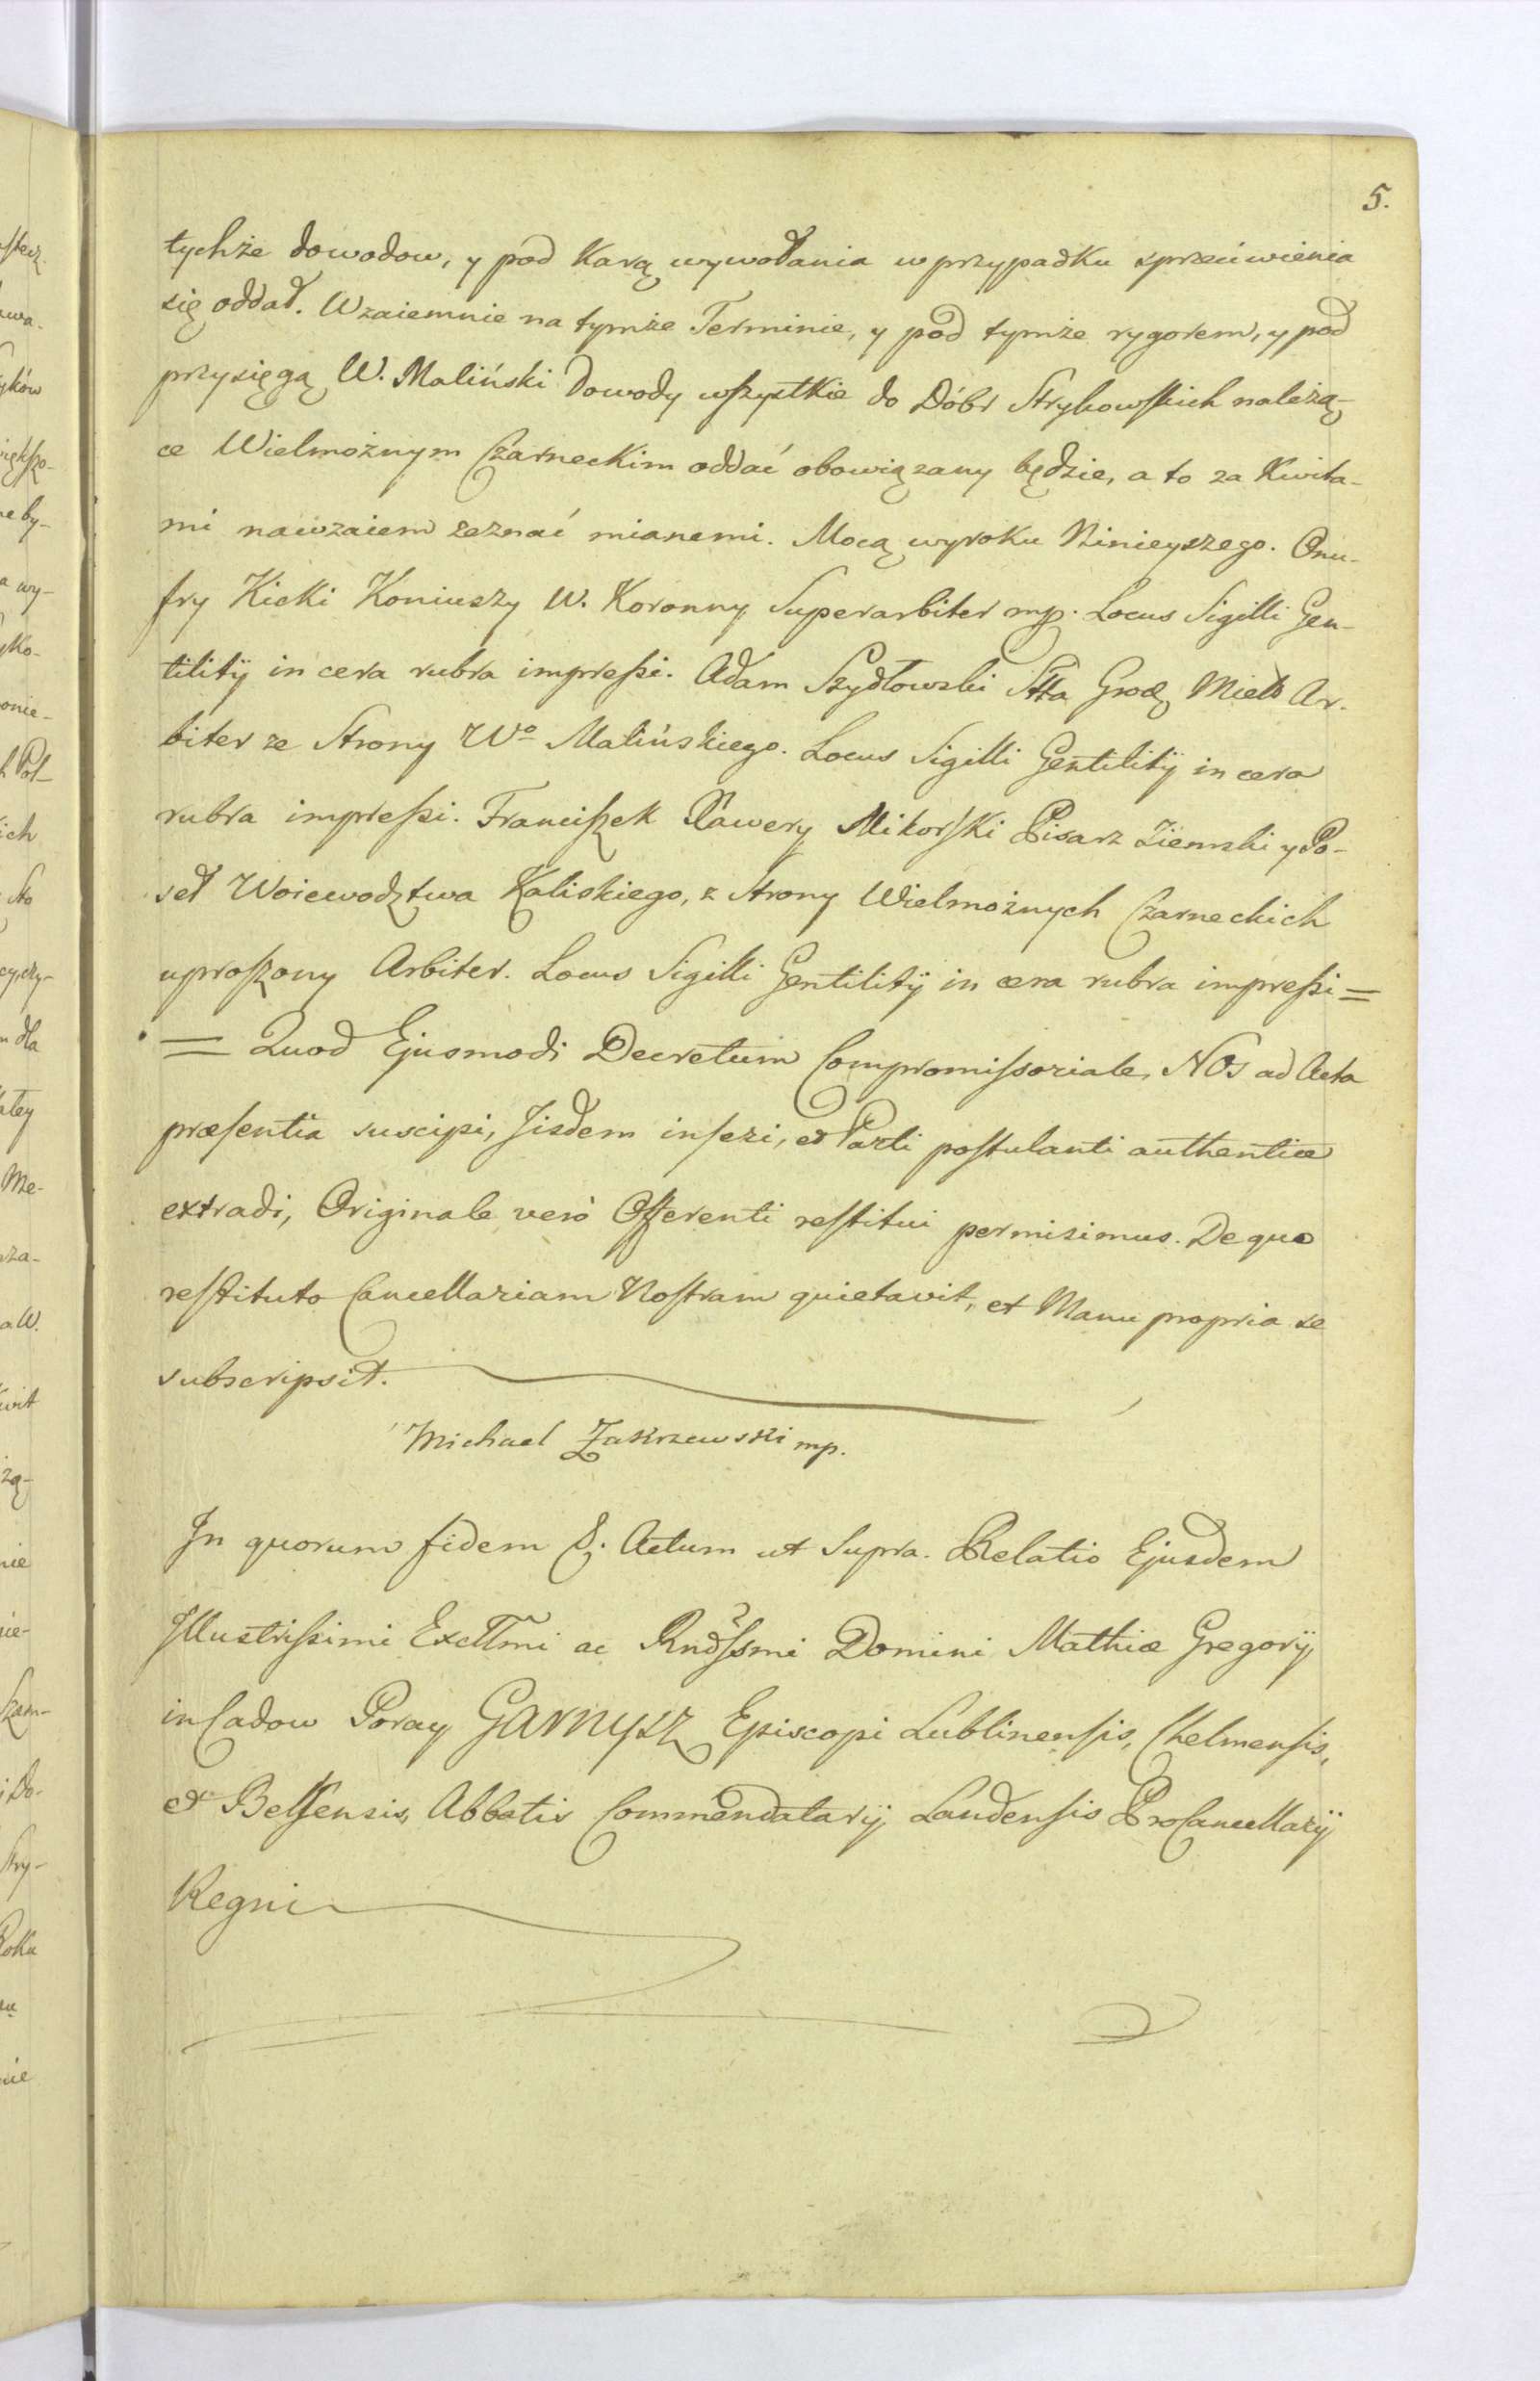 5.
tychże dowodow, y pod karą wywołania w przypadku sprzeciwienia
się oddał. Wzaiemnie na tymże Terminie, y pod tymże rygorem, y pod
przysięgą W. Maliński Dowody wszystkie do Dóbr Strykowskich należą-
ce Wielmożnym Czarneckim oddać obowiązany będzie, a to za Kwita-
mi nawzaiem zeznać mianemi. Mocą wyroku Ninieyszego. Onu-
fry Kicki Koniuszy W. Koronny Superarbiter mp. Locus Sigilli Gen-
tilitij in cera rubra impressi. Adam Szydłowski Stta Grod. Miel. Ar-
biter ze Strony Wo Malińskiego. Locus Sigilli Gentilitij in cera
rubra impressi. Franciszek Xawery Mikorski Pisarz Ziemski y Po-
seł Woiewodztwa Kaliskiego, z Strony Wielmożnych Czarneckich
uproszony Arbiter. Locus Sigilli Gentilitij in cera rubra impressi =
= Quod Ejusmodi Decretum Compromissoriale, NOs ad Acta
præsentia suscipi, Jisdem inseri, et Parti postulanti authentice
extradi, Originale verò Offerenti restitui permisimus. De quo
restituto Cancellariam Nostram quietavit, et Manu propria se
subscripsit.
Michael Zakrzewski mp.
In quorum fidem &. Actum ut Supra. Relatio Ejusdem
Illustrissimi Excllmi ac Rndssmi Domini Mathiæ Gregorij
in Cadow Poray GARNYSZ Episcopi Lublinensis, Chelmensis,
et Belsensis, Abbatis Commendatarij Landensis ProCancellarij
Regni